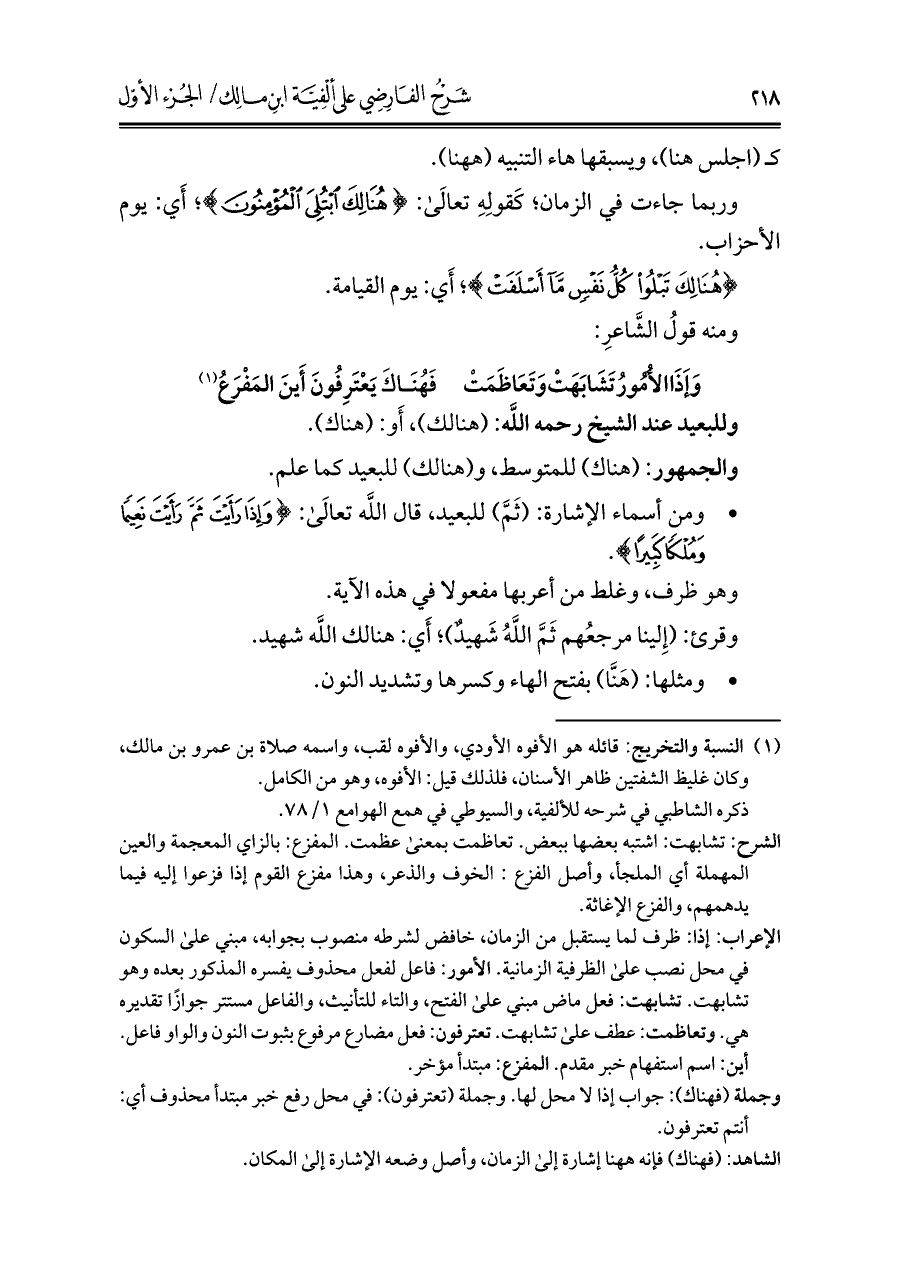 ٢١٨ شَرْحُ الفَارِضِي عَلى أَلْفِيَّة ابنِ مَالِك / الجُزء الأوّل
كـ (اجلس هنا)، ويسبقها هاء التنبيه (ههنا).
وربما جاءت في الزمان؛ كَقولِهِ تعالَىٰ: ﴿هُنَالِكَ ٱبْتُلِىَ ٱلْمُؤْمِنُونَ﴾؛ أَي: يوم
الأحزاب.
﴿هُنَالِكَ تَبْلُوا۟ كُلُّ نَفْسٍ مَّآ أَسْلَفَتْ﴾؛ أَي: يوم القيامة.
ومنه قولُ الشَّاعرِ:
وَإِذَا الأُمُورُ تَشَابَهَتْ وَتَعَاظَمَتْ فَهُنَاكَ يَعْتَرِفُونَ أَينَ المَفْزَعُ(١)
وللبعيد عند الشيخ رحمه اللَّه: (هنالك)، أَو: (هناك).
والجمهور: (هناك) للمتوسط، و(هنالك) للبعيد كما علم.
• ومن أسماء الإشارة: (ثَمَّ) للبعيد، قال اللَّه تعالَىٰ: ﴿وَإِذَا رَأَيْتَ ثَمَّ رَأَيْتَ نَعِيمًا
وَمُلْكًا كَبِيرًا﴾.
وهو ظرف، وغلط من أعربها مفعولا في هذه الآية.
وقرئ: (إِلينا مرجعُهم ثَمَّ اللَّهُ شَهيدٌ)؛ أَي: هنالك اللَّه شهيد.
• ومثلها: (هَنَّا) بفتح الهاء وكسرها وتشديد النون.
(١) النسبة والتخريج: قائله هو الأفوه الأودي، والأفوه لقب، واسمه صلاة بن عمرو بن مالك،
وكان غليظ الشفتين ظاهر الأسنان، فلذلك قيل: الأفوه، وهو من الكامل.
ذكره الشاطبي في شرحه للألفية، والسيوطي في همع الهوامع ١/ ٧٨.
الشرح: تشابهت: اشتبه بعضها ببعض. تعاظمت بمعنىٰ عظمت. المفزع: بالزاي المعجمة والعين
المهملة أي الملجأ، وأصل الفزع : الخوف والذعر، وهذا مفزع القوم إذا فزعوا إليه فيما
يدهمهم، والفزع الإغاثة.
الإعراب: إذا: ظرف لما يستقبل من الزمان، خافض لشرطه منصوب بجوابه، مبني علىٰ السكون
في محل نصب علىٰ الظرفية الزمانية. الأمور: فاعل لفعل محذوف يفسره المذكور بعده وهو
تشابهت. تشابهت: فعل ماض مبني علىٰ الفتح، والتاء للتأنيث، والفاعل مستتر جوازًا تقديره
هي. وتعاظمت: عطف علىٰ تشابهت. تعترفون: فعل مضارع مرفوع بثبوت النون والواو فاعل.
أين: اسم استفهام خبر مقدم. المفزع: مبتدأ مؤخر.
وجملة (فهناك): جواب إذا لا محل لها. وجملة (تعترفون): في محل رفع خبر مبتدأ محذوف أي:
أنتم تعترفون.
الشاهد: (فهناك) فإنه ههنا إشارة إلىٰ الزمان، وأصل وضعه الإشارة إلىٰ المكان.